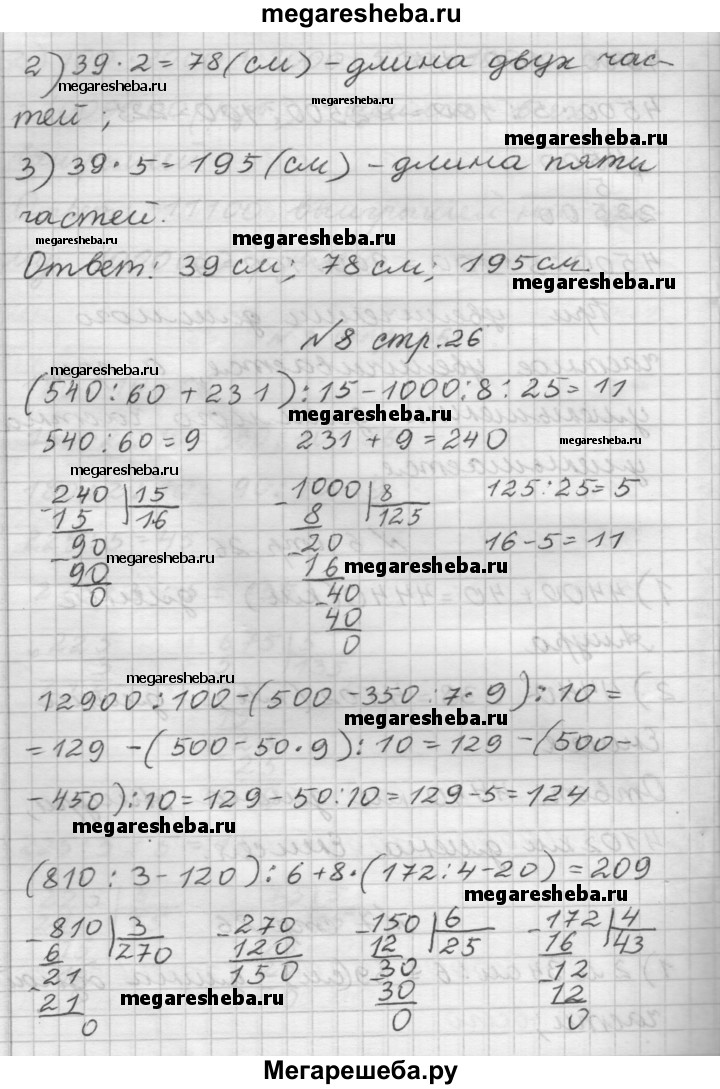 megaresheba.ru
2) 39 · 2 = 78 (см) - длина двух час-
megaresheba.ru megaresheba.ru
тей;
megaresheba.ru
3) 39 · 5 = 195 (см) - длина пяти
частей.
megaresheba.ru megaresheba.ru
Ответ: 39 см; 78 см; 195 см.
megaresheba.ru
№8 стр. 26
megaresheba.ru
(540 : 60 + 231) : 15 - 1000 : 8 : 25 = 11
megaresheba.ru
540 : 60 = 9 231 + 9 = 240
megaresheba.ru
megaresheba.ru
-240 | 15 -1000 | 8 125 : 25 = 5
15 | 16 8 | 125
-90 -20 16 - 5 = 11
megaresheba.ru
90 16
megaresheba.ru
0 -40
40
0
megaresheba.ru
12900 : 100 - (500 - 350 : 7 · 9) : 10 =
megaresheba.ru
= 129 - (500 - 50 · 9) : 10 = 129 - (500 -
- 450) : 10 = 129 - 50 : 10 = 129 - 5 = 124
megaresheba.ru
(810 : 3 - 120) : 6 + 8 · (172 : 4 - 20) = 209
megaresheba.ru
-810 | 3 -270 -150 | 6 -172 | 4
6 | 270 120 12 | 25 16 | 43
-21 150 -30 -12
21 30 12
megaresheba.ru megaresheba.ru
0 0 0
Мегарешеба.ру